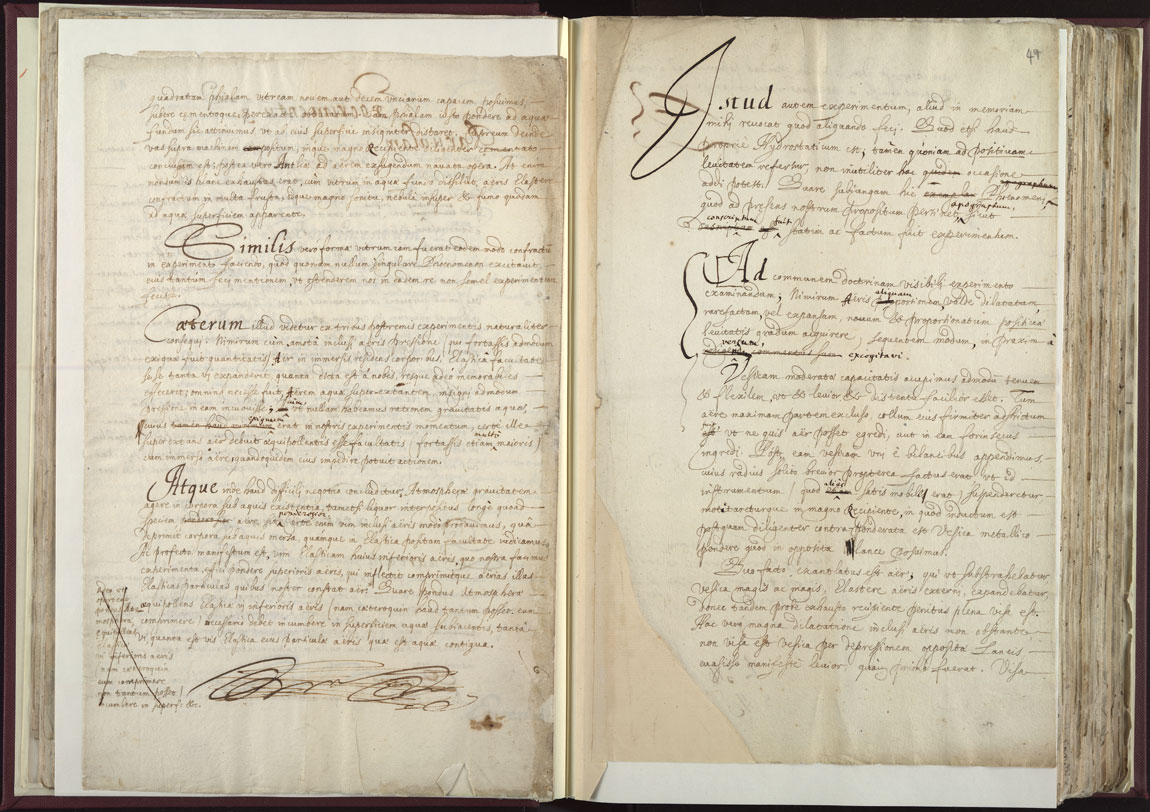 quadratam phialam vitream novem aut decem unciarum capacem posuimus,
subere cæmentoque per : phialam justo pondere ad aquæ
fundum sic attinuimus ut ab ejus superficie insigniter distaret. Aëreum deinde
vas supra machinam positum, inque magno Recipiente diligenter cæmentato
conclusum est; postea vero Antliæ ad aërem exsugendum navata opera. At antequam
nondum is hinc exhaustus erat, cum vitrum in aqua fund dissiluit, aëris Elatere
confractum in multa frusta, idque magno sonitu, nebula insuper & fumo quodam
ad aquæ superficiem apparente.
Similis vero forma vitrum jam fuerat eodem modo confractum
in experimento faciendo, quod quoniam nullum singulare Phænomenon excitavit,
ejus tantum feci mentionem, ut ostenderem nos in eadem re non semel experimentum
fecisse.
Cæterum illud videtur ex tribus postremis experimentis naturaliter
consequi: Nimirum cum amota inclusi aëris pressione (qui fortasse admodum
exiguæ fuit quantitatis) Aër in immersis residens corporibus, Elastica facultate
sese tanta vi expanderet, quanta dicta est à nobis, resque adeo memorabiles
efficeret; omnino necesse fuit, Aërem aquæ super-extantem, insigni admodum
pressione in eam incubuisse; cum ut nullam habeamus rationem gravitatis aquæ,
cujus exiguum erat in nostris experimentis momentum, certe ille
superextans aër debuit æquipollentis esse facultatis (fortassis etiam multo majoris)
cum immerso aëre, quandoquidem ejus impedire potuit actionem.
Atque inde haud difficili negotio concluditur, Atmosphæræ gravitatem
agere in corpora sub aquis existentia, tametsi liquor interpositus longe quod
speciem ponderosior aëre, sit, certe enim vim inclusi aëris modo probavimus, qua
deprimit corpora sub aquis mersa, quamque in Elastica positam facultate vidimus.
At profecto manifestum est, vim Elasticam hujus inferioris aëris, quo nostra facimus
experimenta, effici pondere superioris aëris, qui inflectit comprimitque aërias illas
Elasticas particulas quibus noster constat aër. Quare pondus Atmosphæræ
æquipollens Elasticæ vi inferioris aëris (nam cæteroquin haud tantum posset eum
comprimere) necessario debet incumbere in superficiem aquæ subjacentis, tanta
vi quanta est vis Elastica ejus particulæ aëris quæ est aquæ contigua.
mosphæra,
Elasticæ
vi inferioris aëris
nam cæteroquin
eum comprimere
non tantum posset)
incumbere in superf: &c.
49
Istud autem experimentum, aliud in memoriam
mihi revocat quod aliquando feci. Quod etsi haud
proprie Hydrostaticum est, tamen quoniam ad positivam
levitatem refertur, non inutiliter hac quidem occasione
addi potest. Quare subjungam hic apographum Phænomeni,
quod ad præsens nostrum propositum pertinet, sicut
conscriptum fuit statim ac factum fuit experimentum.
Ad communem doctrinam visibili experimento
examinandam; Nimirum Aëris aliquam portionem valde dilatatam
rarefactam, vel expansam, novum & proportionatum positivæ
levitatis gradum acquirere; sequentem modum, in proxima
versum, excogitavi.
Vesicam moderatæ capacitatis accepimus admodum tenuem
& flexilem, ut & levior & distentu facilior esset. Tum
aëre maximam partem excluso, collum ejus firmiter adstrictum
fuit ut ne quis aër posset egredi, aut in eam forinsecus
ingredi. Postea eam vesicam uni è bilancibus appendimus,
cujus radius solito brevior propterea factus erat ut id
instrumentum (quod alias satis mobile erat) suspenderetur
motitareturque in magno Recipiente, in quod inductum est
postquam diligenter contraponderata est Vesica metallico
pondere quod in opposita lance posuimus.
Quo facto, exantlatus est aër; qui ut subtrahebatur
vesica magis ac magis, Elatere aëris externi, expandebatur,
donec tandem probe exhausto recipiente penitus plena visa est.
Hac vero magna dilatatione inclusi aëris non obstante
non visa est vesica per depressionem oppositæ Lancis
evasisse manifestè levior, quàm prius fuerat. Visa